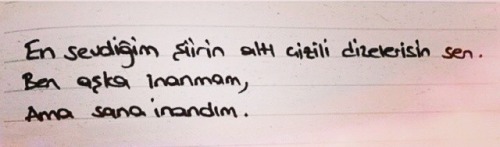 En sevdiğim şiirin altı çizili dizelerisin sen.
Ben aşka inanmam,
Ama sana inandım.